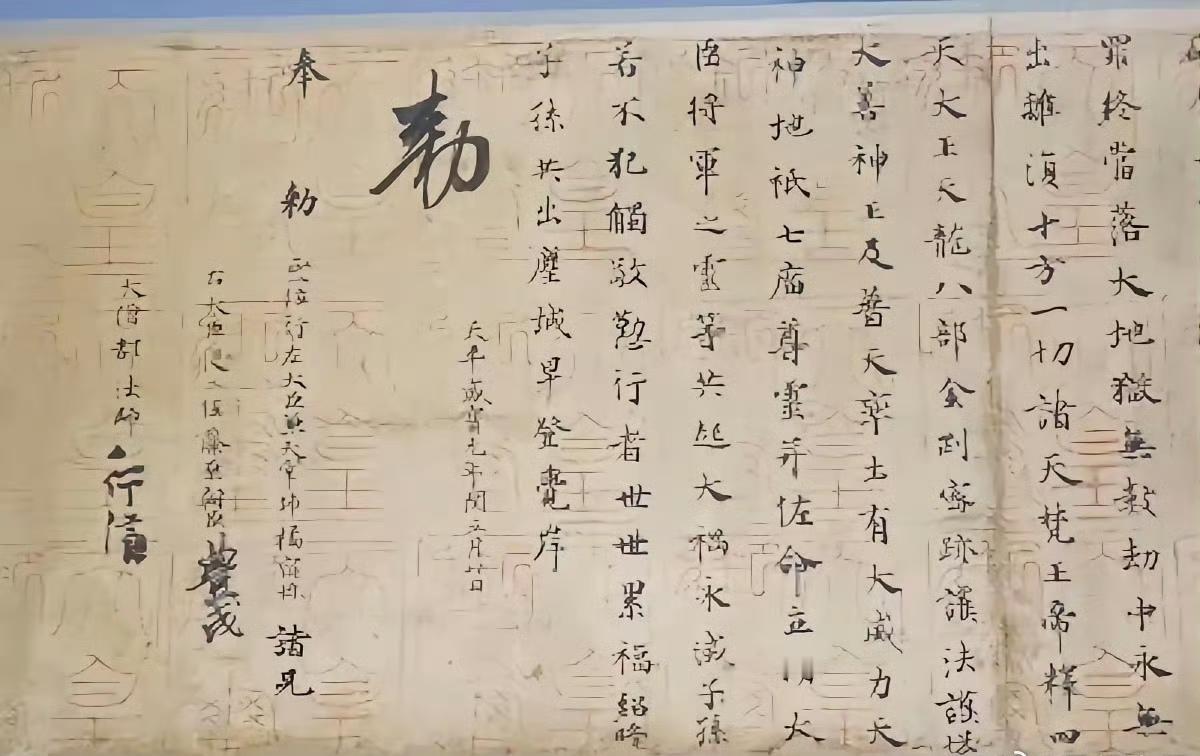 罪終當落大地獄無數劫中永無
出離復十方一切諸天梵王帝釋四
天大王天龍八部金剛密跡護法護塔
大善神王及普天率土有大威力天
神地祇七廟尊靈并佐命立功大
臣將軍之靈等共起大禍永滅子孫
若不犯觸敬勤行者世世累福紹隆
子孫共出塵域早登覺岸
天平感寶元年閏五月廿日
勅
奉
勅 正一位行左大臣兼大宰帥橘宿祢諸兄
右大臣從二位藤原朝臣豊成
大僧都法師行信